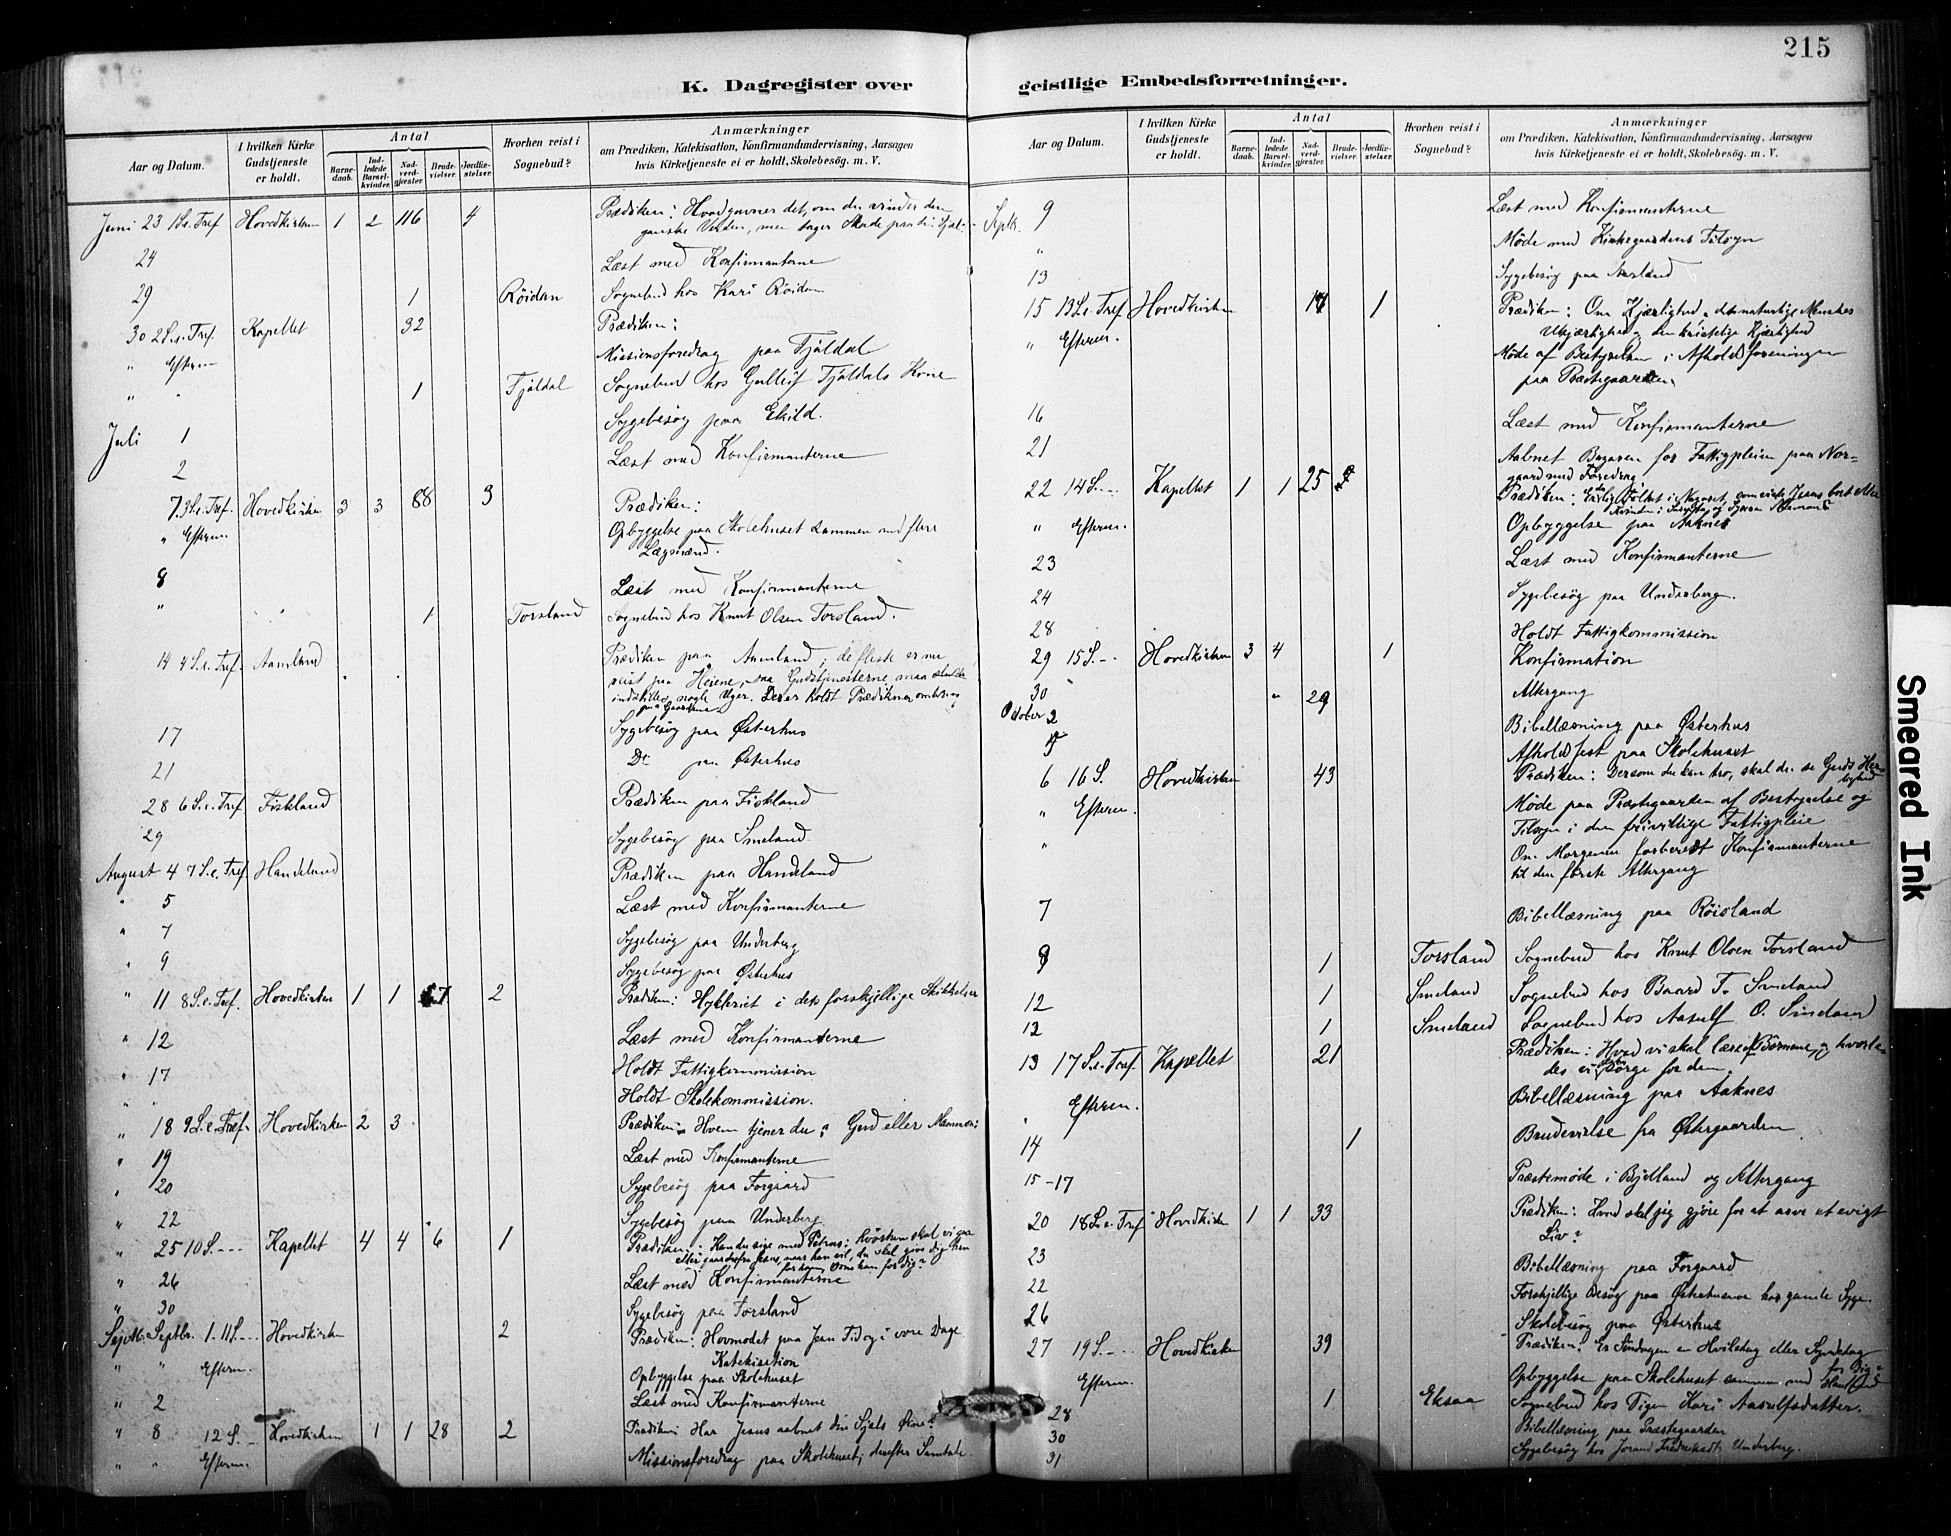 215
K. Dagregister over geistlige Embedsforretninger.
Aar og Datum. I hvilken Kirke Gudstjeneste er holdt. Antal Barnedaab. Indledede Barselkvinder. Nadverdgjester. Brudevielser. Jordfæstelser. Hvorhen reist i Sognebud? Anmærkninger om Prædiken, Katekisation, Konfirmandundervisning, Aarsagen hvis Kirketjeneste ei er holdt, Skolebesøg. m. V.
Juni 23 1 S.e. Tref. Hovedkirken 1 2 116 4 Prædiken: Hvad gavner det, om du vinder den
ganske Verden, men tager Skade paa din Sjæl
24 Læst med Konfirmanterne
29 1 Röidan Sognebud hos Kari Röidan
30 2 S.e. Tref. Kapellet 32 Prædiken:
" Efterm Missionsforedrag paa Fjäldal
" 1 Fjäldal Sognebud hos Gulleif Fjäldals Kone
Juli 1 Sygebesög paa Ekild.
2 Læst med Konfirmanterne
7. 3 S.e. Tref. Hovedkirken 3 3 88 3 Prædiken:
" Efterm. Opbyggelse paa Skolehuset sammen med flere
Lægmænd.
8 Læst med Konfirmanterne
" 1 Torsland Sognebud hos Knut Olsen Torsland.
14 4 S.e. Tref. Aamland Prædiken paa Aamland; de fleste er nu
reist paa Heiene, saa Gudstjenesterne maa
indstilles nogle Uger. Der er holdt Prædikener omkring
paa Gaardene
17 Sygebesög paa Østerhus
21 Do paa Østerhus
28 6 S.e. Tref. Fiskland Prædiken paa Fiskland
29 Sygebesög paa Smeland
August 4 7 S.e. Tref. Handeland Prædiken paa Handeland
" 5 Læst med Konfirmanterne
" 7 Sygebesög paa Underberg
" 9 Sygebesög paa Østerhus
" 11 8 S.e. Tref. Hovedkirken 1 1 67 2 Prædiken: Hykleriet i dets forskjellige Skikkelser
" 12 Læst med Konfirmanterne
" 17 Holdt Fattigkommission
" " Holdt Skolekommission.
" 18 9 S.e. Tref. Hovedkirken 2 3 Prædiken: Hvem tjener du: Gud eller Mammon?
" 19 Læst med Konfirmanterne
" 20 Sygebesög paa Forgaard
" 22 Sygebesög paa Underberg.
" 25 10 S. Kapellet 4 4 6 1 Prædiken: Kan du sige med Petrus: Hvorhen skal vi gaa
Læst med Konfirmanterne
" 26
" 30 Sygebesög paa Torsland
Septb. Septbr. 1. 11 S. Hovedkirken 2 Prædiken: Hovmodet paa Jesu Tid og i vore Dage
Katekisation
" " Efterm. Opbyggelse paa Skolehuset
" 2 Læst med Konfirmanterne
" 8 12 S. Hovedkirken 1 1 28 2 Prædiken: Har Jesus aabnet din Sjæls Øine?
" " Efterm. Missionsforedrag paa Skolehuset; derefter Samtale.
Aar og Datum. I hvilken Kirke Gudstjeneste er holdt. Antal Barnedaab. Indledede Barselkvinder. Nadverdgjester. Brudevielser. Jordfæstelser. Hvorhen reist i Sognebud? Anmærkninger om Prædiken, Katekisation, Konfirmandundervisning, Aarsagen hvis Kirketjeneste ei er holdt, Skolebesøg. m. V.
Septbr. 9 Læst med Konfirmanterne
" Møde med Kirkegaardens Tilsyn
13 Sygebesög paa Aasland
15 13 S.e. Tref Hovedkirken 1 Prædiken: Om Kjærlighed, det naturlige Menskes
Ukjærlighed og den kristelige Kjærlighed
" Efterm. Møde af Bestyrelsen i Afholdsforeningen
paa Præstegaarden.
16 Læst med Konfirmanterne
21 Aabnet Bazaren for Fattigpleien paa Nor-
gaard med Foredrag.
22 14 S. Kapellet 1 1 25 Prædiken:
" Efterm. Opbyggelse paa Aaknes
23 Læst med Konfirmanterne
24 Sygebesög paa Underberg.
28 Holdt Fattigkommission
29 15 S. Hovedkirken 3 4 1 Konfirmation
30 " 29 Altergang
Oktober 2 Bibellæsning paa Østerhus
5 Afholdsfest paa Skolehuset
6 16 S. Hovedkirken 43 Prædiken: Dersom du kan tro, skal du se Guds Her-
lighed
" Efterm. Møde paa Præstegaarden af Bestyrelse og
Tilsyn i den frivillige Fattigpleie
" Om Morgenen forberedt Konfirmanterne
til den første Altergang
7 Bibellæsning paa Röisland
9 1 Torsland Sognebud hos Knut Olsen Torsland
12 1 Smeland Sognebud hos Baard T. Smeland
12 1 Smeland Sognebud hos Aasulf O. Smeland
13 17 S.e. Tref. Kapellet 21 Prædiken: Hvad vi skal lære af Børnene, og hvorle-
des vi skal sørge for dem.
" Efterm. Bibellæsning paa Aaknes
14 1 Brudevielse fra Østergaarden
15-17 Præstemøde i Bjelland og Altergang
20 18 S.e. Tref Hovedkirken 1 1 33 Prædiken: Hvad skal jeg gjöre for at arve et evigt
Liv?
23 Bibellæsning paa Forgaard
22 Forskjellige Besög paa Østerhusene hos gamle Syge.
26 Skolebesög paa Østerhus
27 19 S. Hovedkirken 39 Prædiken: Er Söndagen en Hviledag eller Syndedag
for Dig?
Efterm. Opbyggelse paa Skolehuset sammen med
28 1 Eksaa Sognebud hos Pigen Kari Aasulfsdatter.
30 Bibellæsning paa Præstegaarden
31 Sygebesög hos Jorand Fredriksdt. Underberg.
Smeared Ink